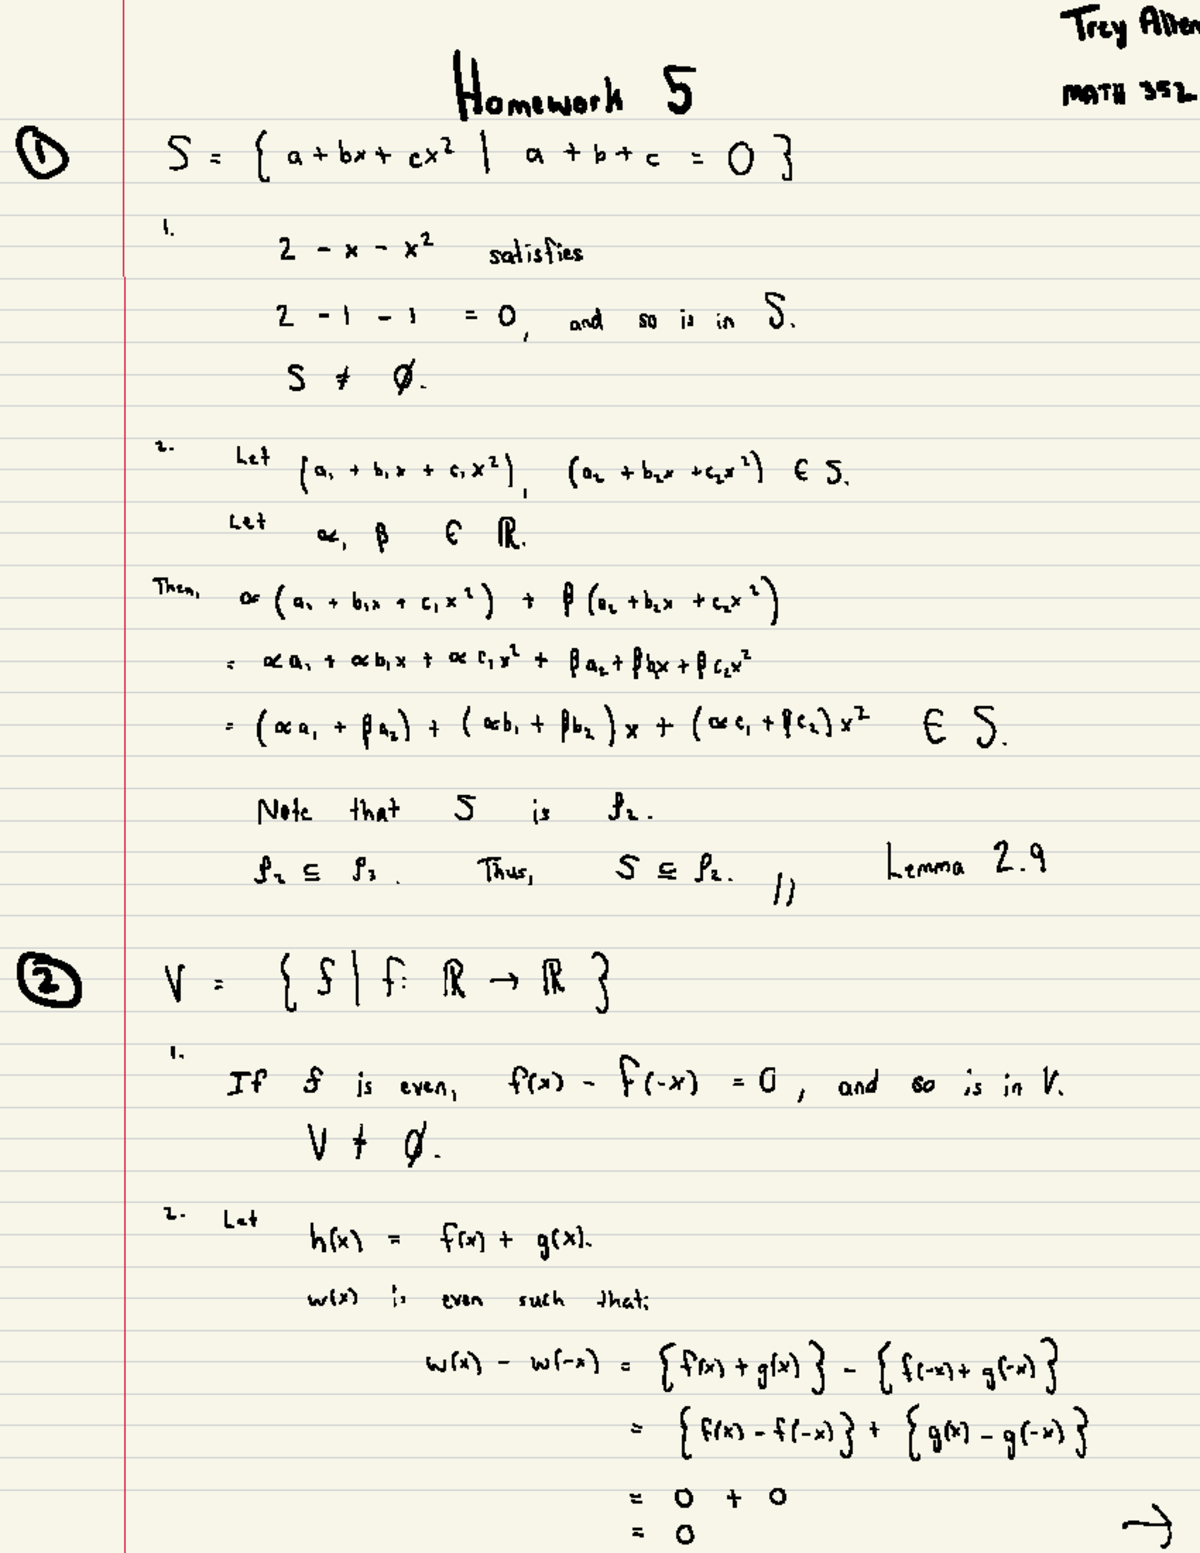 Trey Allen
Homework 5
MATH 352
① S = { a + bx + cx² | a + b + c = 0 }
1.
2 - x - x² satisfies
2 - 1 - 1 = 0, and so is in S.
S ≠ ∅.
2. Let (a₁ + b₁x + c₁x²), (a₂ + b₂x + c₂x²) ∈ S.
Let α, β ∈ ℝ.
Then, α(a₁ + b₁x + c₁x²) + β(a₂ + b₂x + c₂x²)
= αa₁ + αb₁x + αc₁x² + βa₂ + βb₂x + βc₂x²
= (αa₁ + βa₂) + (αb₁ + βb₂)x + (αc₁ + βc₂)x² ∈ S.
Note that S is P₂.
P₂ ⊆ P₃. Thus, S ⊆ P₂. // Lemma 2.9
② V = { f | f: ℝ → ℝ }
1.
If f is even, f(x) - f(-x) = 0, and so is in V.
V ≠ ∅.
2. Let h(x) = f(x) + g(x).
w(x) is even such that:
w(x) - w(-x) = {f(x) + g(x)} - {f(-x) + g(-x)}
= {f(x) - f(-x)} + {g(x) - g(-x)}
= 0 + 0
= 0 →